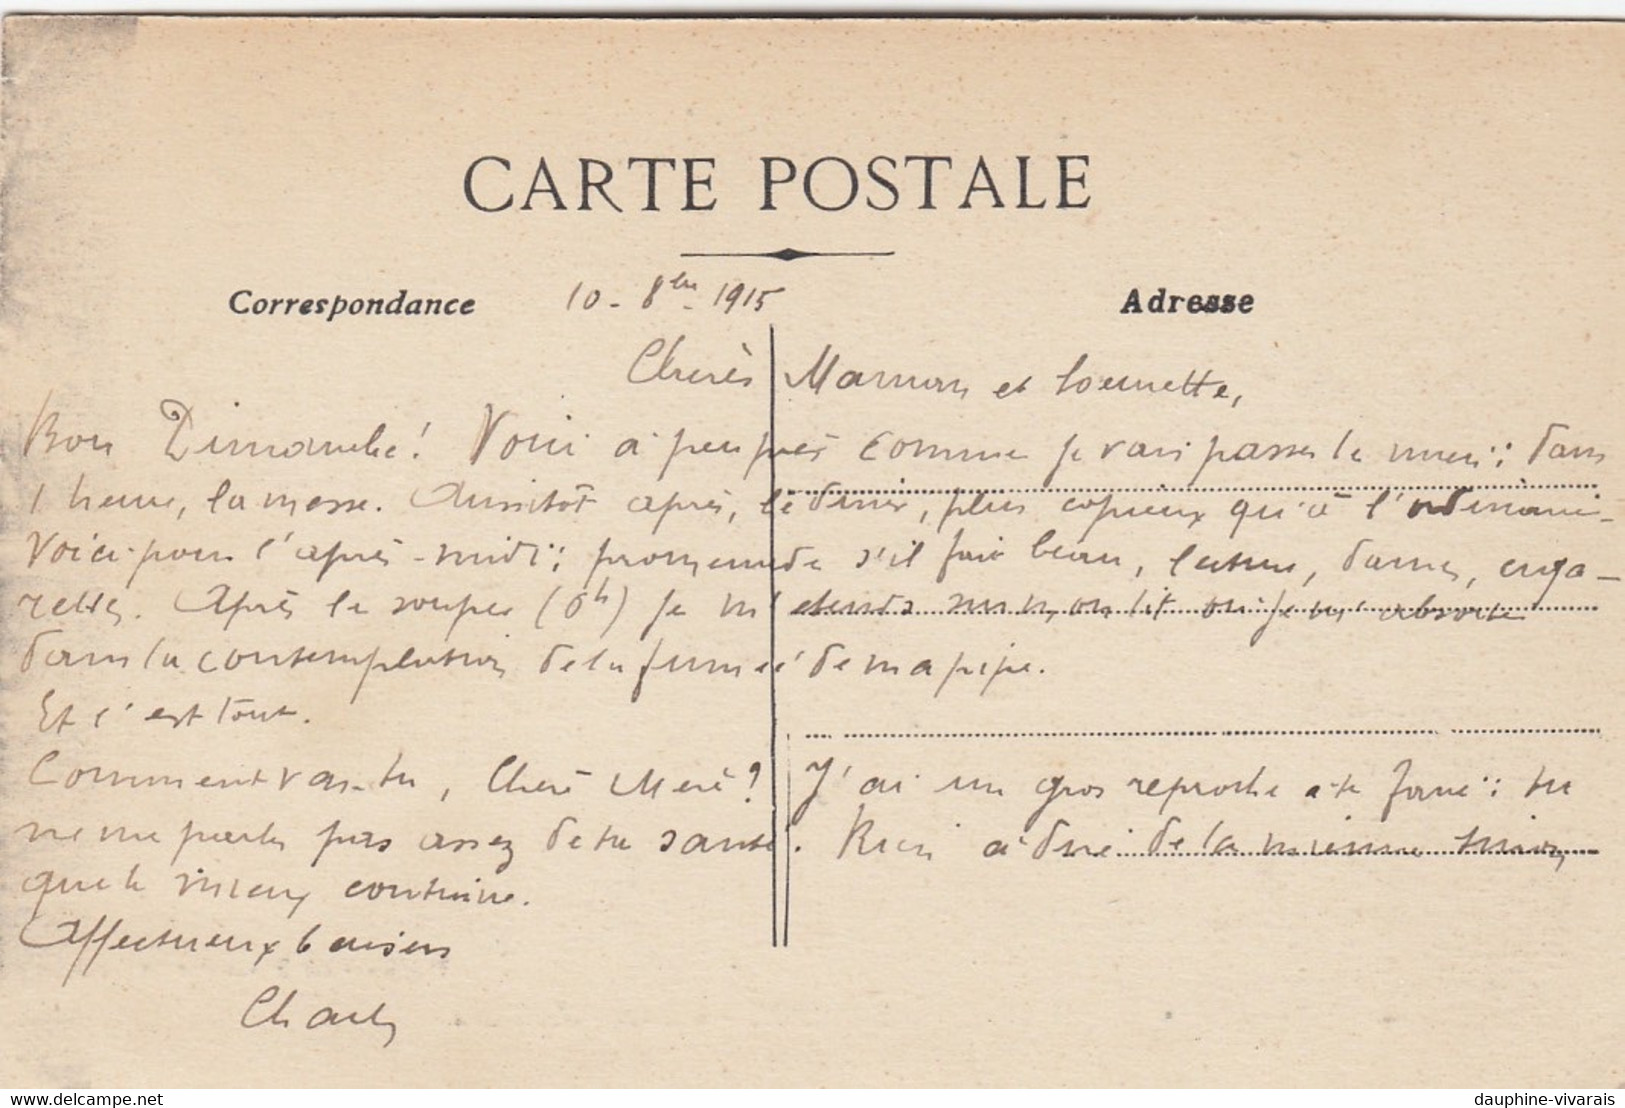 CARTE POSTALE
Correspondance
10 - 8bre - 1915
Adresse
Chères Maman et Soeurette,
Bon Dimanche! Voici à peu près comme je vais passer le mien: dans
1 heure, la messe. Aussitôt après, le dîner, plus copieux qu'à l'ordinaire.
Voici pour l'après-midi: promenade s'il fait beau, lecture, dames, ciga-
rettes. Après le souper (6h) je m'étends sur mon lit où je m'absorbe
dans la contemplation de la fumée de ma pipe.
Et c'est tout.
Comment vas-tu, Chère Mère? J'ai un gros reproche à te faire: tu
ne me parles pas assez de ta santé. Rien à dire de la mienne sinon
que le mieux continue.
Affectueux baisers
Charles
dauphine-vivarais
delcampe.net